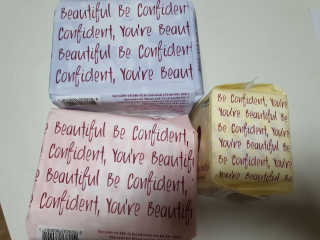 Beautiful Be Confident
Confident, You're Beaut
Beautiful Be Confident
Confident, You're Beaut
Beautiful Be Confident,
Confident, You're Beautif
Beautiful Be Confident,
Confident, You're Beautif
Be Confident, You're
You're Beautiful Be
Be Confident, You're
You're Beautiful Be
Be Confident, You're